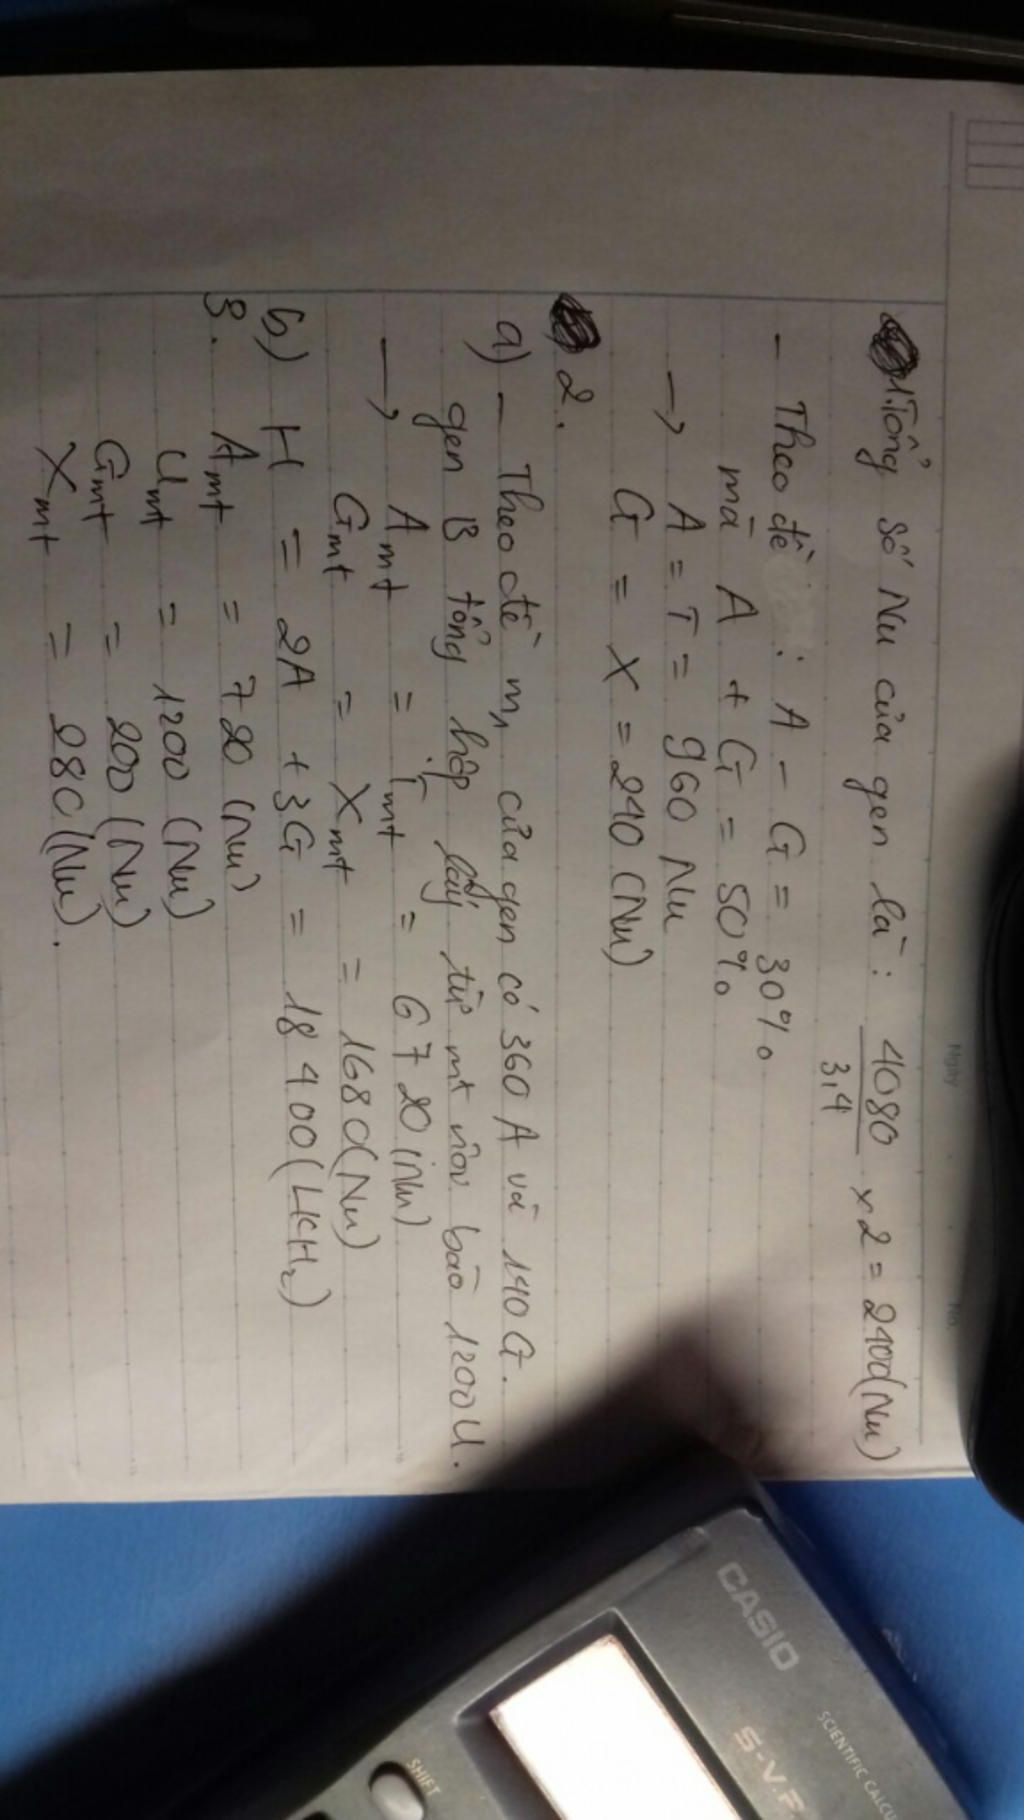 Ngày
No.
1. Tổng số Nu của gen là: 4080 / 3,4 x 2 = 2400 (Nu)
- Theo đề : A - G = 30%
mà A + G = 50%
→ A = T = 960 Nu
G = X = 240 (Nu)
2.
a) - Theo đề m, của gen có 360 A và 140 G.
gen B tổng hợp lấy từ mt nội bào 1200U.
→ Amt = Tmt = 6720 (Nu)
Gmt = Xmt = 1680 (Nu)
b) H = 2A + 3G = 18400 (LKH2)
3. Amt = 720 (Nu)
Umt = 1200 (Nu)
Gmt = 200 (Nu)
Xmt = 280 (Nu).
CASIO
SCIENTIFIC CALCU
S-V.P
SHIFT